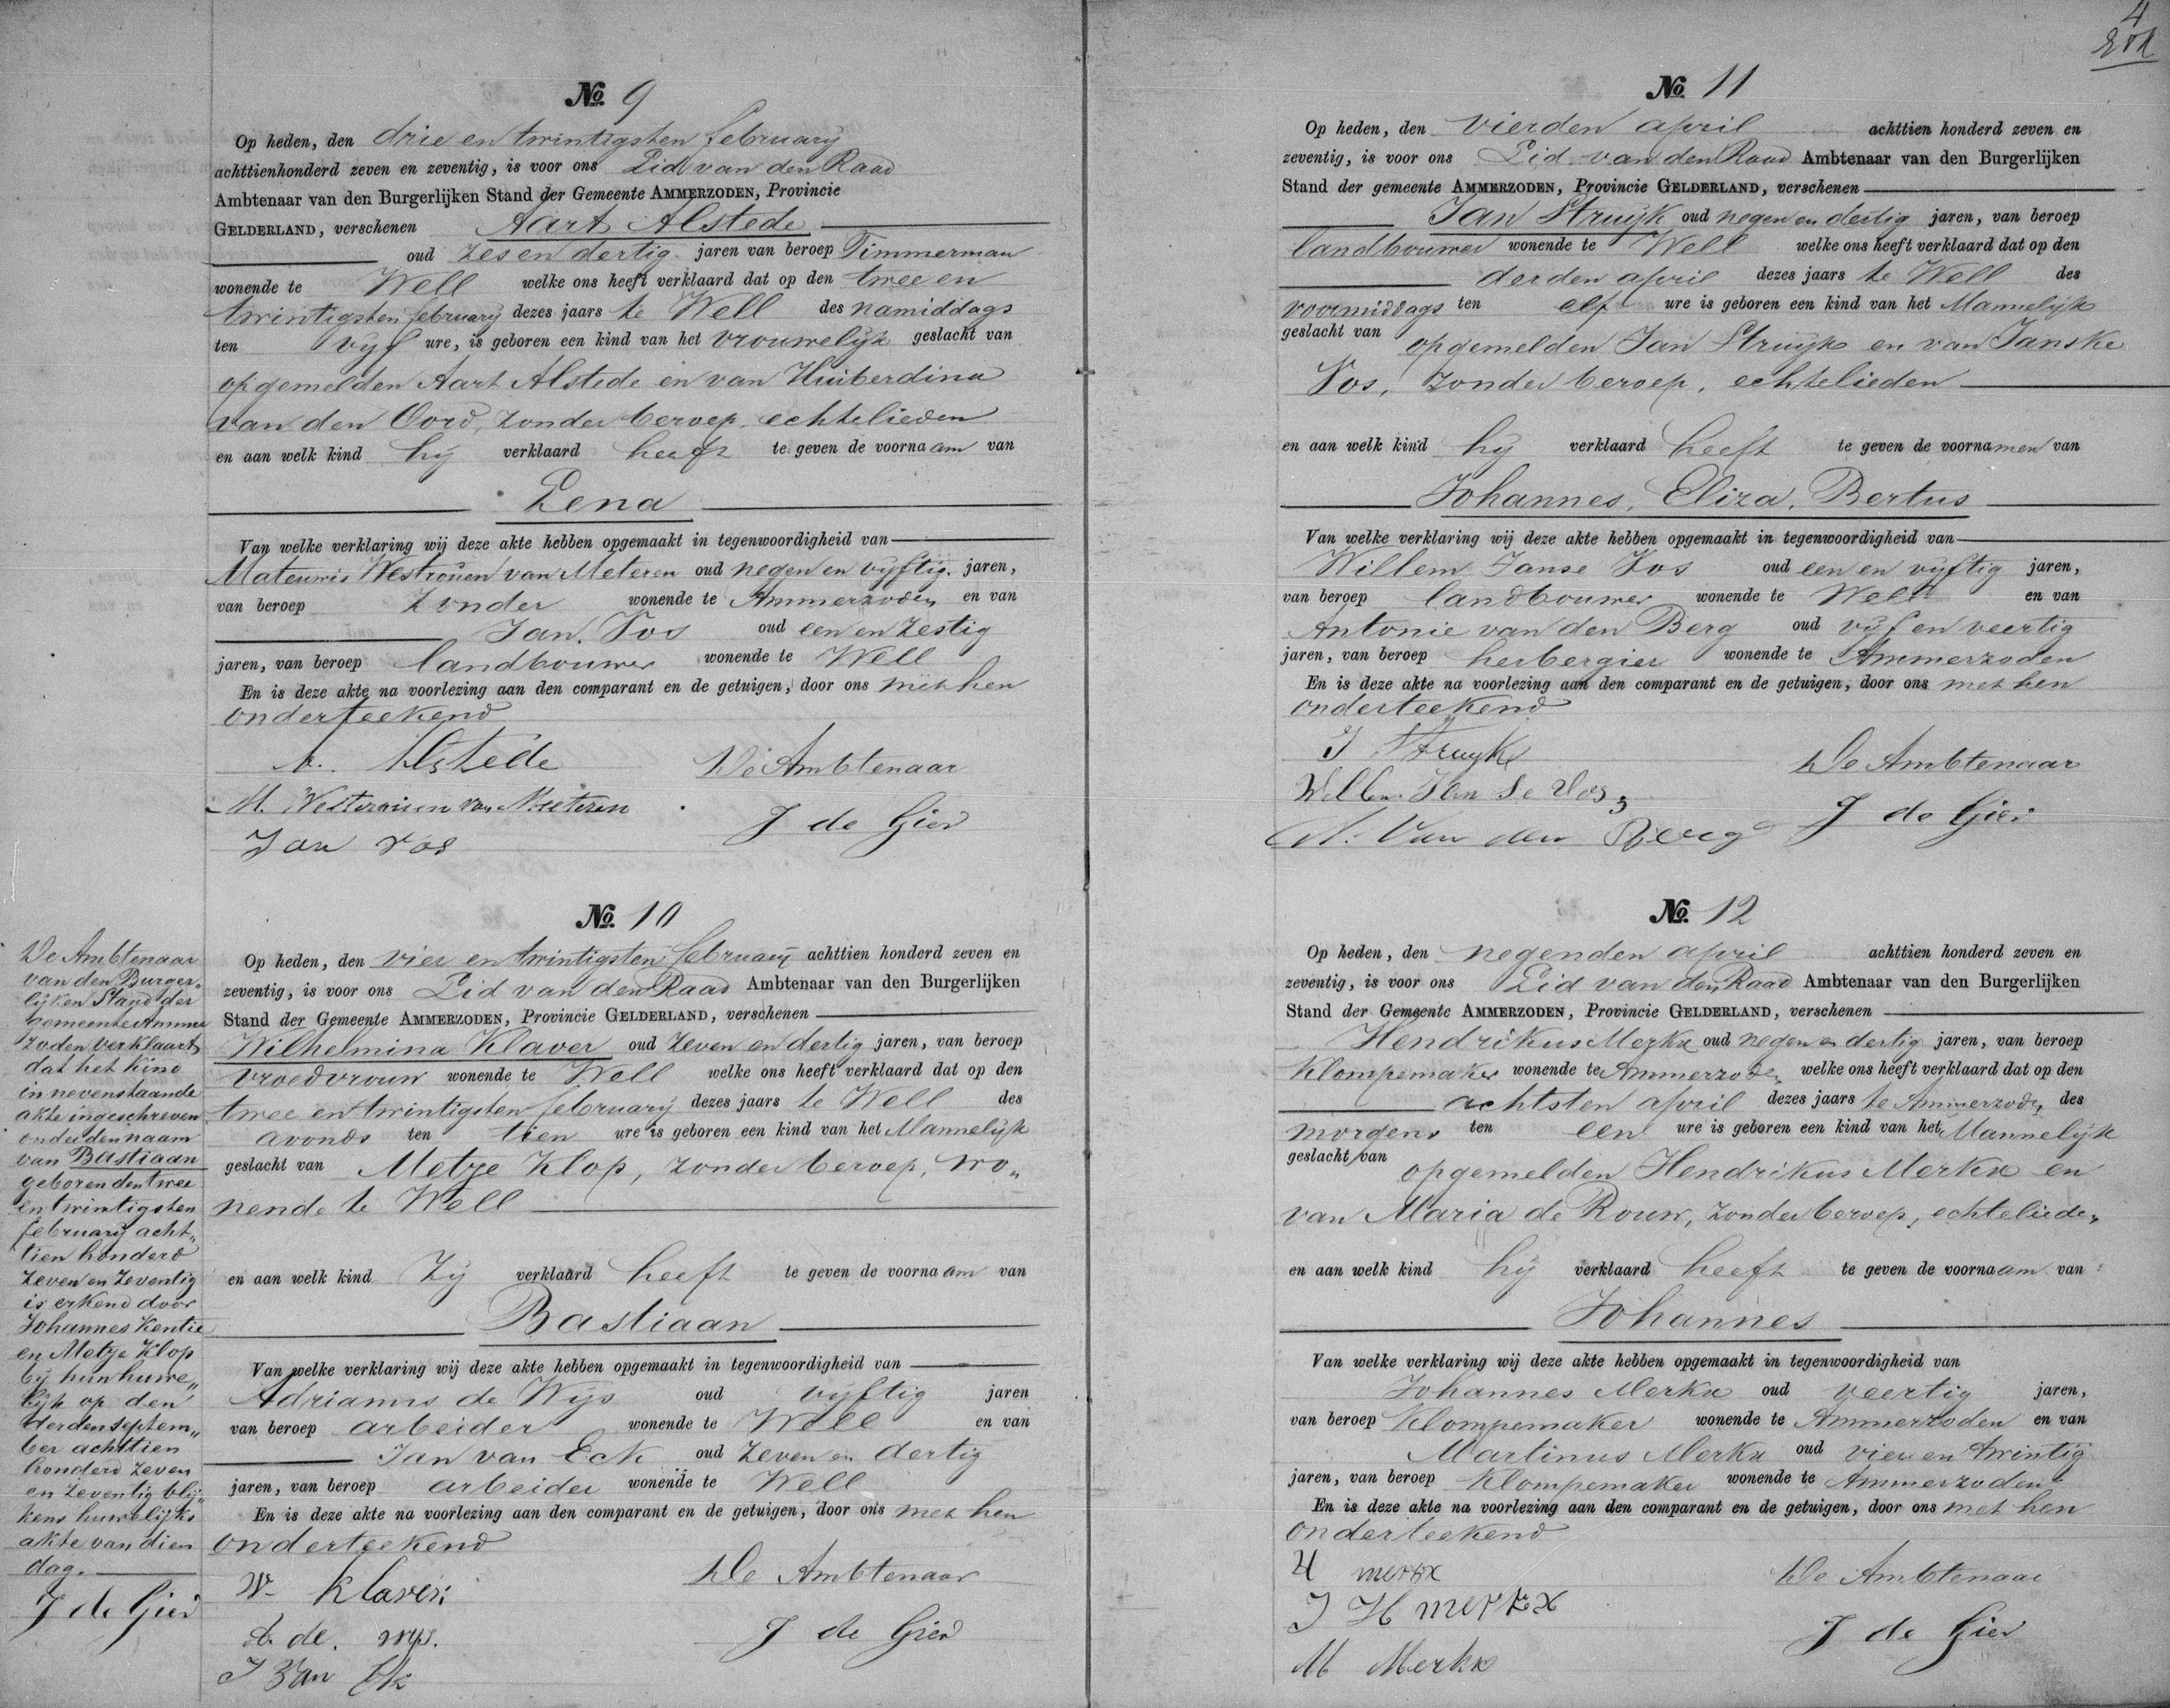 No. 9
Op heden, den drie en twintigsten february
achttienhonderd zeven en zeventig, is voor ons Lid van den Raad
Ambtenaar van den Burgerlijken Stand der Gemeente AMMERZODEN, Provincie
GELDERLAND, verschenen Aart Alstede
oud zes en dertig jaren van beroep Timmerman
wonende te Well welke ons heeft verklaard dat op den twee en
twintigsten february dezes jaars te Well des namiddags
ten vyf ure, is geboren een kind van het vrouwelyk geslacht van
opgemelden Aart Alstede en van Huiberdina
van den Oord, zonder beroep, echtelieden
en aan welk kind hy verklaard heeft te geven de voornaam van
Lena
Van welke verklaring wij deze akte hebben opgemaakt in tegenwoordigheid van
Mateuwis Westrouen van Meteren oud negen en vyftig jaren,
van beroep Zonder wonende te Ammerzoden en van
Jan Vos oud een en zestig
jaren, van beroep landbouwer wonende te Well
En is deze akte na voorlezing aan den comparant en de getuigen, door ons met hen
onderteekend
A. Alstede De Ambtenaar
M. van Meeteren
Jan Vos J de Gier
No. 10
Op heden, den vier en twintigsten february achttien honderd zeven en
zeventig, is voor ons Lid van den Raad Ambtenaar van den Burgerlijken
Stand der Gemeente AMMERZODEN, Provincie GELDERLAND, verschenen
Wilhelmina Klaver oud zeven en dertig jaren, van beroep
vroedvrouw wonende te Well welke ons heeft verklaard dat op den
twee en twintigsten february dezes jaars te Well des
avonds ten tien ure is geboren een kind van het Mannelyk
geslacht van Metje Klop, zonder beroep, wo„
nende te Well
en aan welk kind Zy verklaard heeft te geven de voornaam van
Bastiaan
Van welke verklaring wij deze akte hebben opgemaakt in tegenwoordigheid van
Adrianus de Wys oud vyftig jaren
van beroep arbeider wonende te Well en van
Jan van Eck oud zeven en dertig
jaren, van beroep arbeider wonende te Well
En is deze akte na voorlezing aan den comparant en de getuigen, door ons met hen
onderteekend
W. Klaver De Ambtenaar
A. de wys. J de Gier
J van Ek
De Ambtenaar
van den Burger„
lijken Stand der
gemeente Ammer
zoden verklaart
dat het kind
in nevenstaande
akte ingeschreven
onder den naam
van Bastiaan
geboren den twee
en twintigsten
february acht„
tien honderd
zeven en zeventig
is erkend door
Johannes Kentie
en Metje Klop
by hun huwe„
lijk op den
derden septem„
ber achttien
honderd zeven
en zeventig blij„
kens huwelijks
akte van dien
dag.
J de Gier
4
No. 11
Op heden, den vierden april achttien honderd zeven en
zeventig, is voor ons Lid van den Raad Ambtenaar van den Burgerlijken
Stand der gemeente AMMERZODEN, Provincie GELDERLAND, verschenen
Jan Struyk oud negen en dertig jaren, van beroep
landbouwer wonende te Well welke ons heeft verklaard dat op den
derden april dezes jaars te Well des
voormiddags ten elf ure is geboren een kind van het Mannelyk
geslacht van opgemelden Jan Struyk en van Janske
Vos, zonder beroep, echtelieden
en aan welk kind hy verklaard heeft te geven de voornamen van
Johannes, Eliza, Bertus
Van welke verklaring wij deze akte hebben opgemaakt in tegenwoordigheid van
Willem Janse Vos oud een en vyftig jaren,
van beroep landbouwer wonende te Well en van
Antonie van den Berg oud vyf en veertig
jaren, van beroep herbergier wonende te Ammerzoden
En is deze akte na voorlezing aan den comparant en de getuigen, door ons met hen
onderteekend
J Struyk De Ambtenaar
Willem Jan se Vos
A. Van den Berg J de Gier
No. 12
Op heden, den negenden april achttien honderd zeven en
zeventig, is voor ons Lid van den Raad Ambtenaar van den Burgerlijken
Stand der Gemeente AMMERZODEN, Provincie GELDERLAND, verschenen
Hendrikus Merkx oud negen en dertig jaren, van beroep
Klompemaker wonende te Ammerzoden welke ons heeft verklaard dat op den
achtsten april dezes jaars te Ammerzoden des
morgens ten een ure is geboren een kind van het Mannelyk
geslacht van opgemelden Hendrikus Merkx en
van Maria de Rouw, zonder beroep, echtelieden
en aan welk kind hy verklaard heeft te geven de voornaam van
Johannes
Van welke verklaring wij deze akte hebben opgemaakt in tegenwoordigheid van
Johannes Merkx oud veertig jaren,
van beroep Klompemaker wonende te Ammerzoden en van
Martinus Merkx oud vier en twintig
jaren, van beroep Klompemaker wonende te Ammerzoden
En is deze akte na voorlezing aan den comparant en de getuigen, door ons met hen
onderteekend
H merkx De Ambtenaar
J H merkx
M Merkx J de Gier